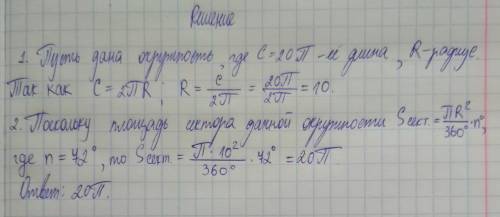 Решение
1. Пусть дана окружность, где C=20П - её длина, R-радиус.
Так как C=2ПR; R= C/2П = 20П/2П = 10.
2. Поскольку площадь сектора данной окружности Sсект.= ПR²/360° · n°,
где n=72°, то Sсект.= П·10²/360° · 72° = 20П.
Ответ: 20П.